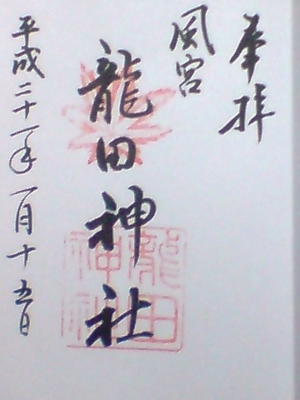 奉拝
風宮
龍田神社
平成二十一年一月十五日
龍田神社